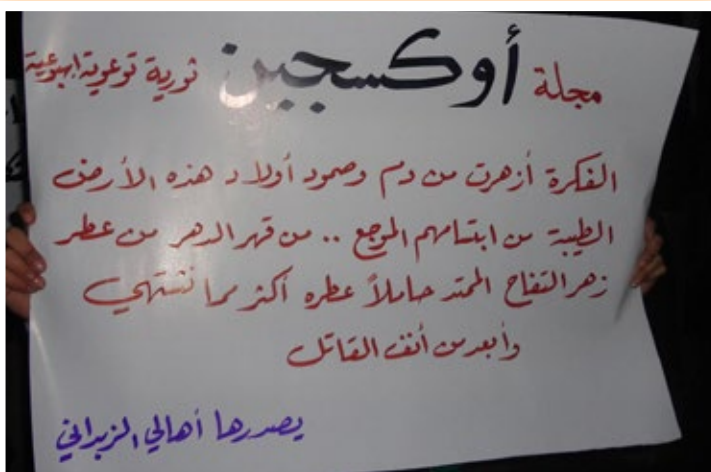 مجلة أوكسجين ثورية توعوية أسبوعية
الفكرة أزهرت من دم وصمود أولاد هذه الأرض
الطيبة من ابتسامهم الموجع .. من قهر الدهر من عطر
زهر التفاح الممتد حاملاً عطره أكثر مما نشتهي
وأبعد من أنف القاتل
يصدرها أهالي الزبداني